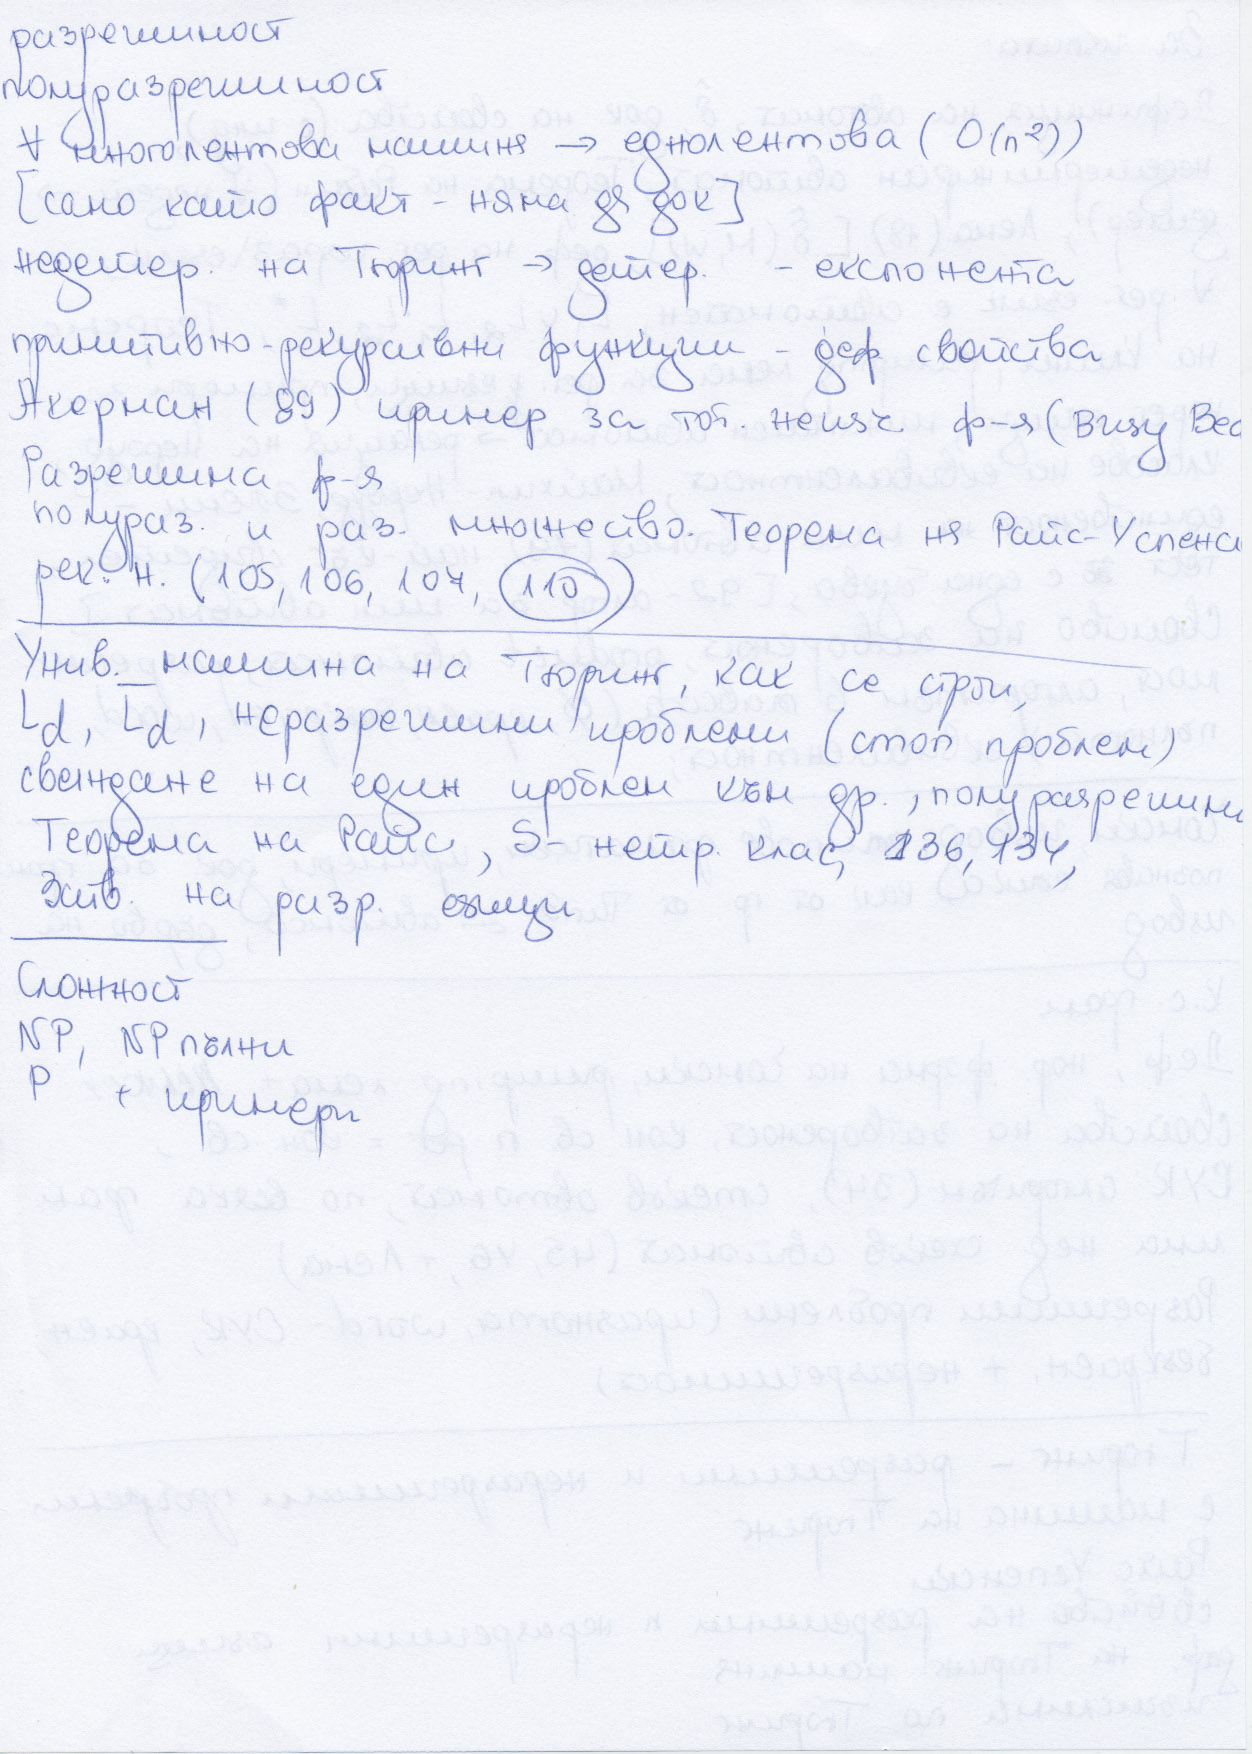 разрешимост
полуразрешимост
∀ многолентова машина → еднолентова ( O(n²))
[само като факт - няма да док]
недетер. на Тюринг → детер. - експонента
примитивно-рекурсивни функции - деф свойства
Акерман (89) пример за тот. неизч ф-я (Busy Bea
Разрешима ф-я
полураз. и раз. множество. Теорема на Райс-Успенс
рек. н. (105, 106, 107, 110)
Унив. машина на Тюринг, как се строи,
L_d, L̅_d, неразрешими проблеми (стоп проблем)
свеждане на един проблем към др., полуразрешими
Теорема на Райс, S- нетр. клас, 136, 134,
Затв. на разр. езици
Сложност
NP, NP пълни
P + примери